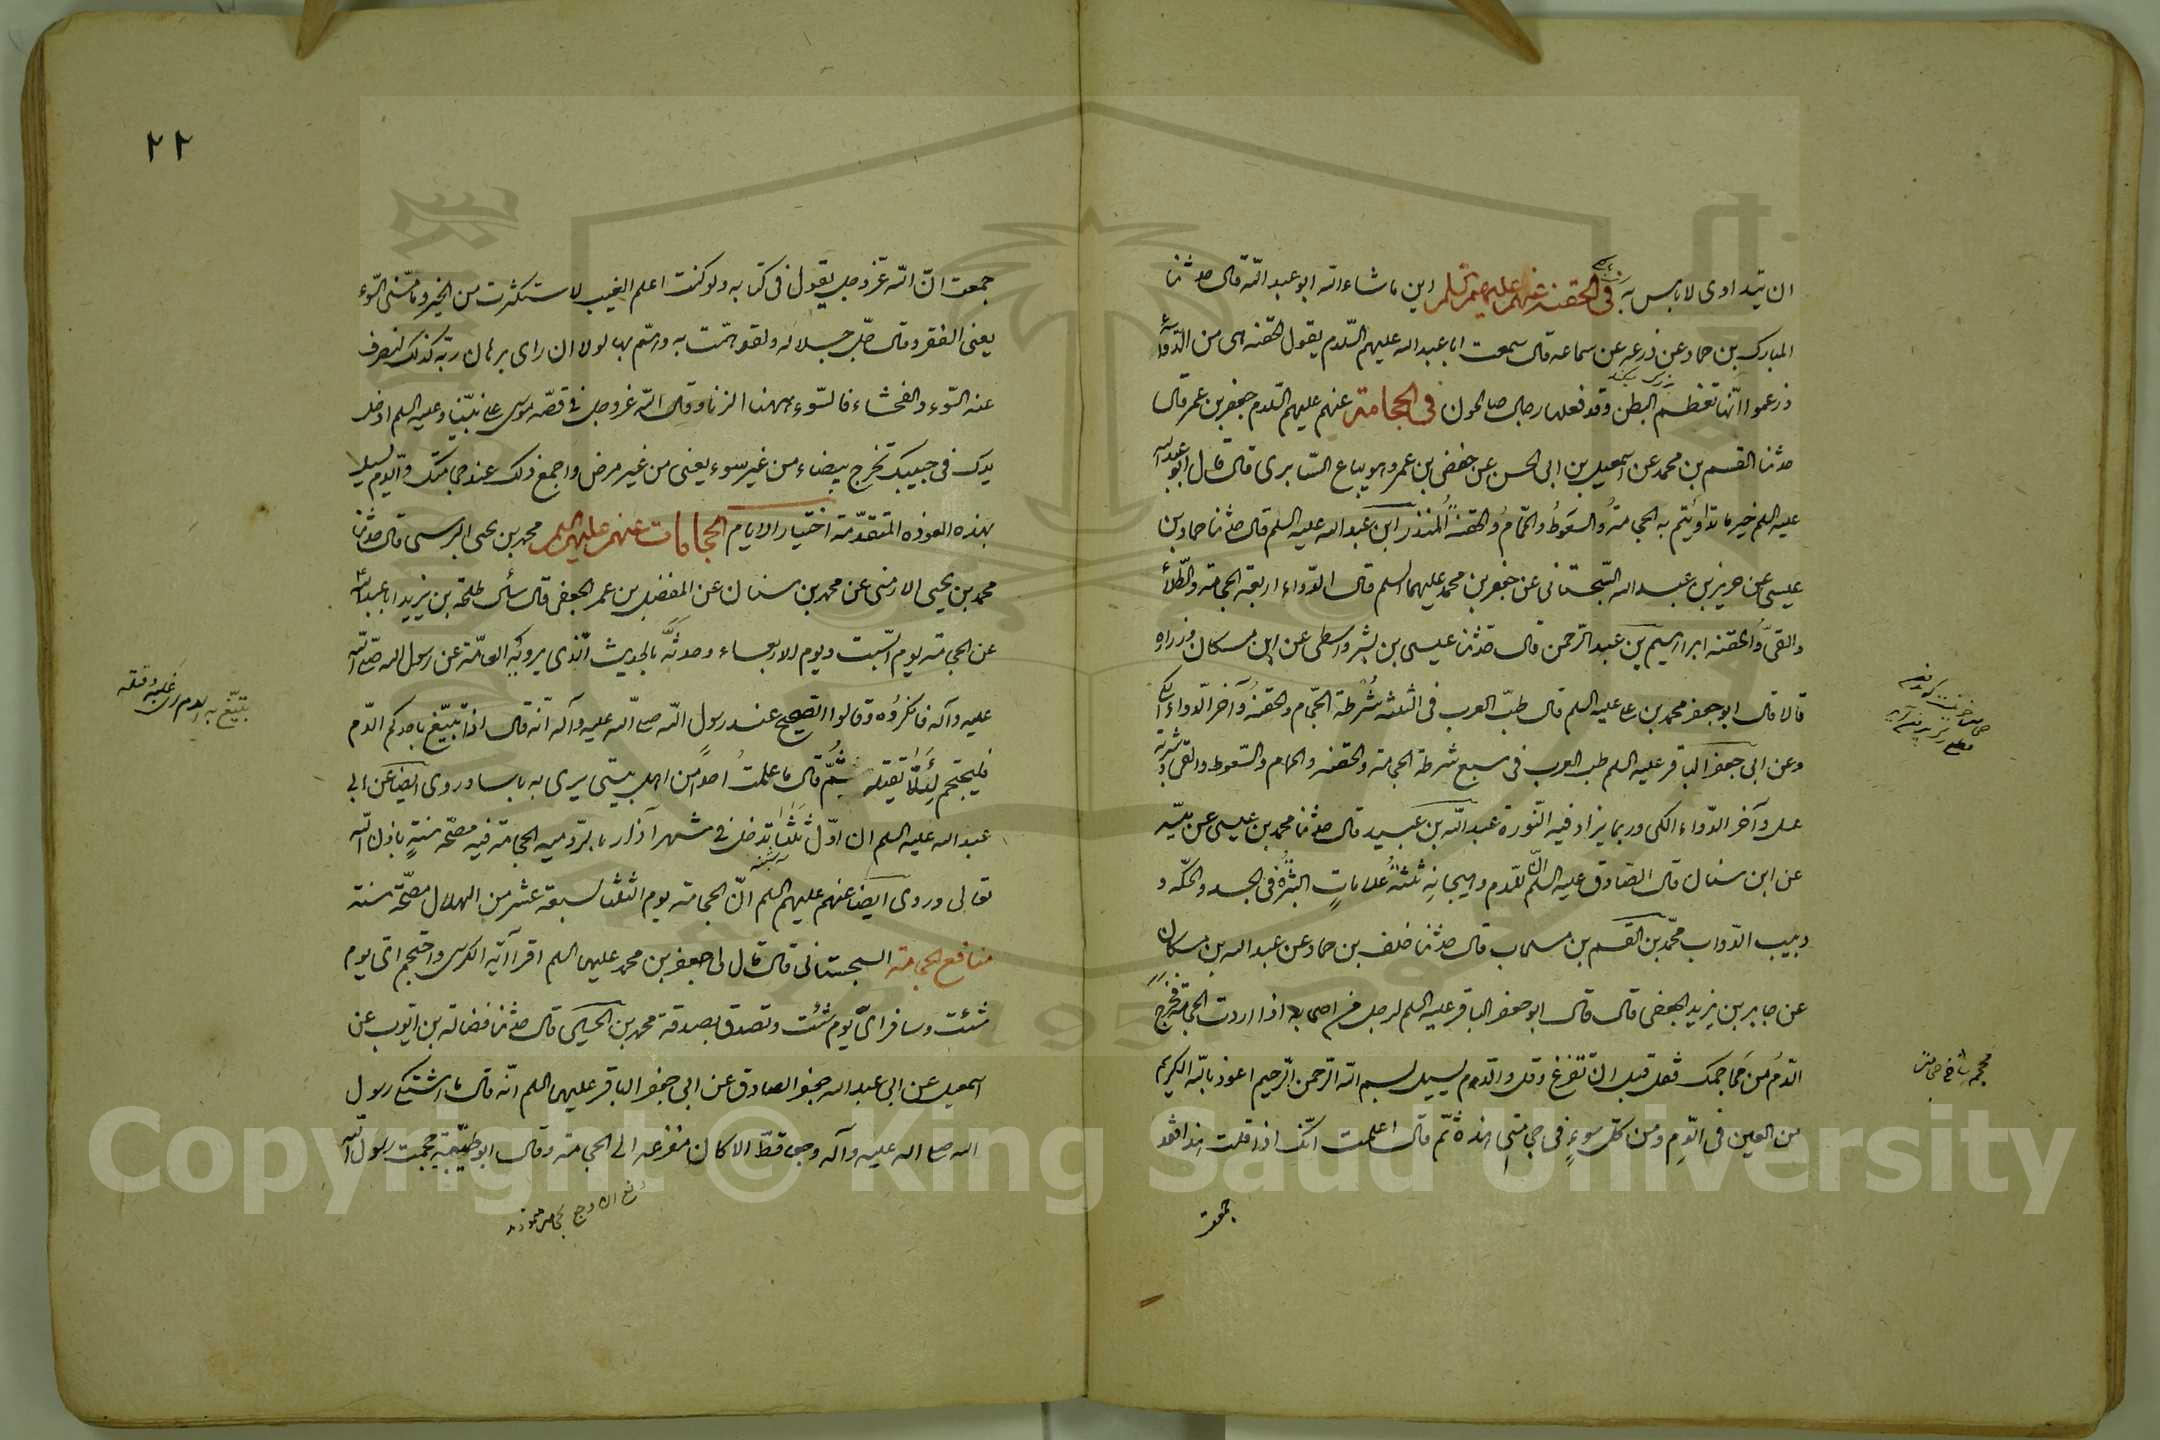 ان يتداوى لا باس به في الحقنة عنهم عليهم السلم ابن ما شاء الله ابو عبد الله قال حدثنا
المبارك بن حماد عن زرعه عن سماعه قال سمعت ابا عبد الله عليهم السلام يقول الحقنه هى من الدواء
وزعموا انها تعظم البطن وقد فعلها رجال صالحون في الحجامة عنهم عليهم السلام جعفر بن عمر قال
حدثنا القسم بن محمد عن اسمعيل بن ابى الحسن عن حفص بن عمر وهو بياع السابرى قال قال ابو عبد الله
عليه السلم خير ما تداويتم به الحجامة والسعوط والحمام والحقنة المنذر ابن عبد الله عليه السلم قال حدثنا حماد بن
عيسى عن حريز بن عبد الله السجستانى عن جعفر بن محمد عليهما السلم قال الدواء اربعة الحجامة والطلاء
والقئ والحقنه ابراهيم بن عبد الرحمن قال حدثنا عيسى بن بشر واسطى عن ابن مسكان وزراره
قالا قال ابو جعفر محمد بن على عليه السلم قال طب العرب فى الثلثه شرطة الحجام والحقنة وآخر الدواء الكى
وعن ابى جعفر الباقر عليه السلم طب العرب فى سبع شرطة الحجامة والحقنه والحمام والسعوط والقئ وشربة
عسل وآخر الدواء الكى وربما يزاد فيه النورة عبد الله بن عبيد قال حدثنا محمد بن عيسى عن ميسر
عن ابن سنان قال الصادق عليه السلم ان للدم وهيجانه ثلثة علامات البثرة فى الجسد والحكه و
دبيب الدواب محمد بن القسم بن مسحاب قال حدثنا خلف بن حماد عن عبد الله بن مسكان
عن جابر بن يزيد الجعفى قال قال ابو جعفر الباقر عليه السلم لرجل من اصحابه اذا اردت الحجامة فخرج
الدم من محاجمك فقل قبل ان تفرغ وقل والدم يسيل بسم الله الرحمن الرحيم اعوذ بالله الكريم
من العين فى الدم ومن كل سوء فى حجامتى هذه ثم قال اعلمت انك اذا قلت هذا فقد
جمعت
محجمه شاخ حجامت
٢٢
جمعت ان الله عز وجل يقول فى كتابه ولو كنت اعلم الغيب لاستكثرت من الخير وما مسنى السوء
يعنى الفقر وقال جل جلاله ولقد همت به وهم بها لولا ان راى برهان ربه كذلك لنصرف
عنه السوء والفحشاء فالسوء ههنا الزنا وقال الله عز وجل فى قصه موسى على نبينا وعليه السلم ادخل
يدك فى جيبك تخرج بيضاء من غير سوء يعنى من غير مرض واجمع ذلك عند حجامتك والدم يسيل
بهذه العوذه المتقدمة اختيار الايام الحجامات عنهم عليهم السلم محمد بن يحيى البرسى قال حدثنا
محمد بن يحيى الارمنى عن محمد بن سنان عن المفضل بن عمر الجعفى قال سأل طلحة بن يزيد ابا عبد الله
عن الحجامة يوم السبت ويوم الاربعاء وحدثته بالحديث الذى يرويه العامة عن رسول الله صلى الله
عليه وآله فانكروه وقالوا الصحيح عند رسول الله صلى الله عليه وآله انه قال اذا تبيغ باحدكم الدم
فليحتجم لئلا يقتله ثم قال ما علمت احدا من اهل بيتى يرى به باسا وروى ايضا عن ابى
عبد الله عليه السلم ان اول ثلثا تدخل فى شهر آذار بالروميه الحجامة فيه مصحه سنة باذن الله
تعالى وروى ايضا عنهم عليهم السلم ان الحجامة يوم الثلثا لسبعة عشر من الهلال مصحة سنة
منافع الحجامة السجستانى قال قال لى جعفر بن محمد عليهما السلم اقرا آية الكرسى واحتجم اى يوم
شئت وسافر اى يوم شئت وتصدق بصدقة محمد بن الحسين قال حدثنا فضاله بن ايوب عن
اسمعيل عن ابى عبد الله جعفر الصادق عن ابى جعفر الباقر عليهما السلم انه قال ما اشتكى رسول
الله صلى الله عليه وآله وجعا قط الا كان مفزعه الى الحجامة وقال ابو طيبة حجمت رسول الله
تبيغ به الدم اى غلبه وقتله
Copyright © King Saud University
1957